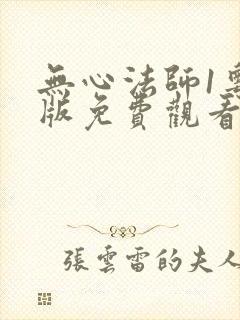 無心法師1
版免費觀看
張雲雷的夫人